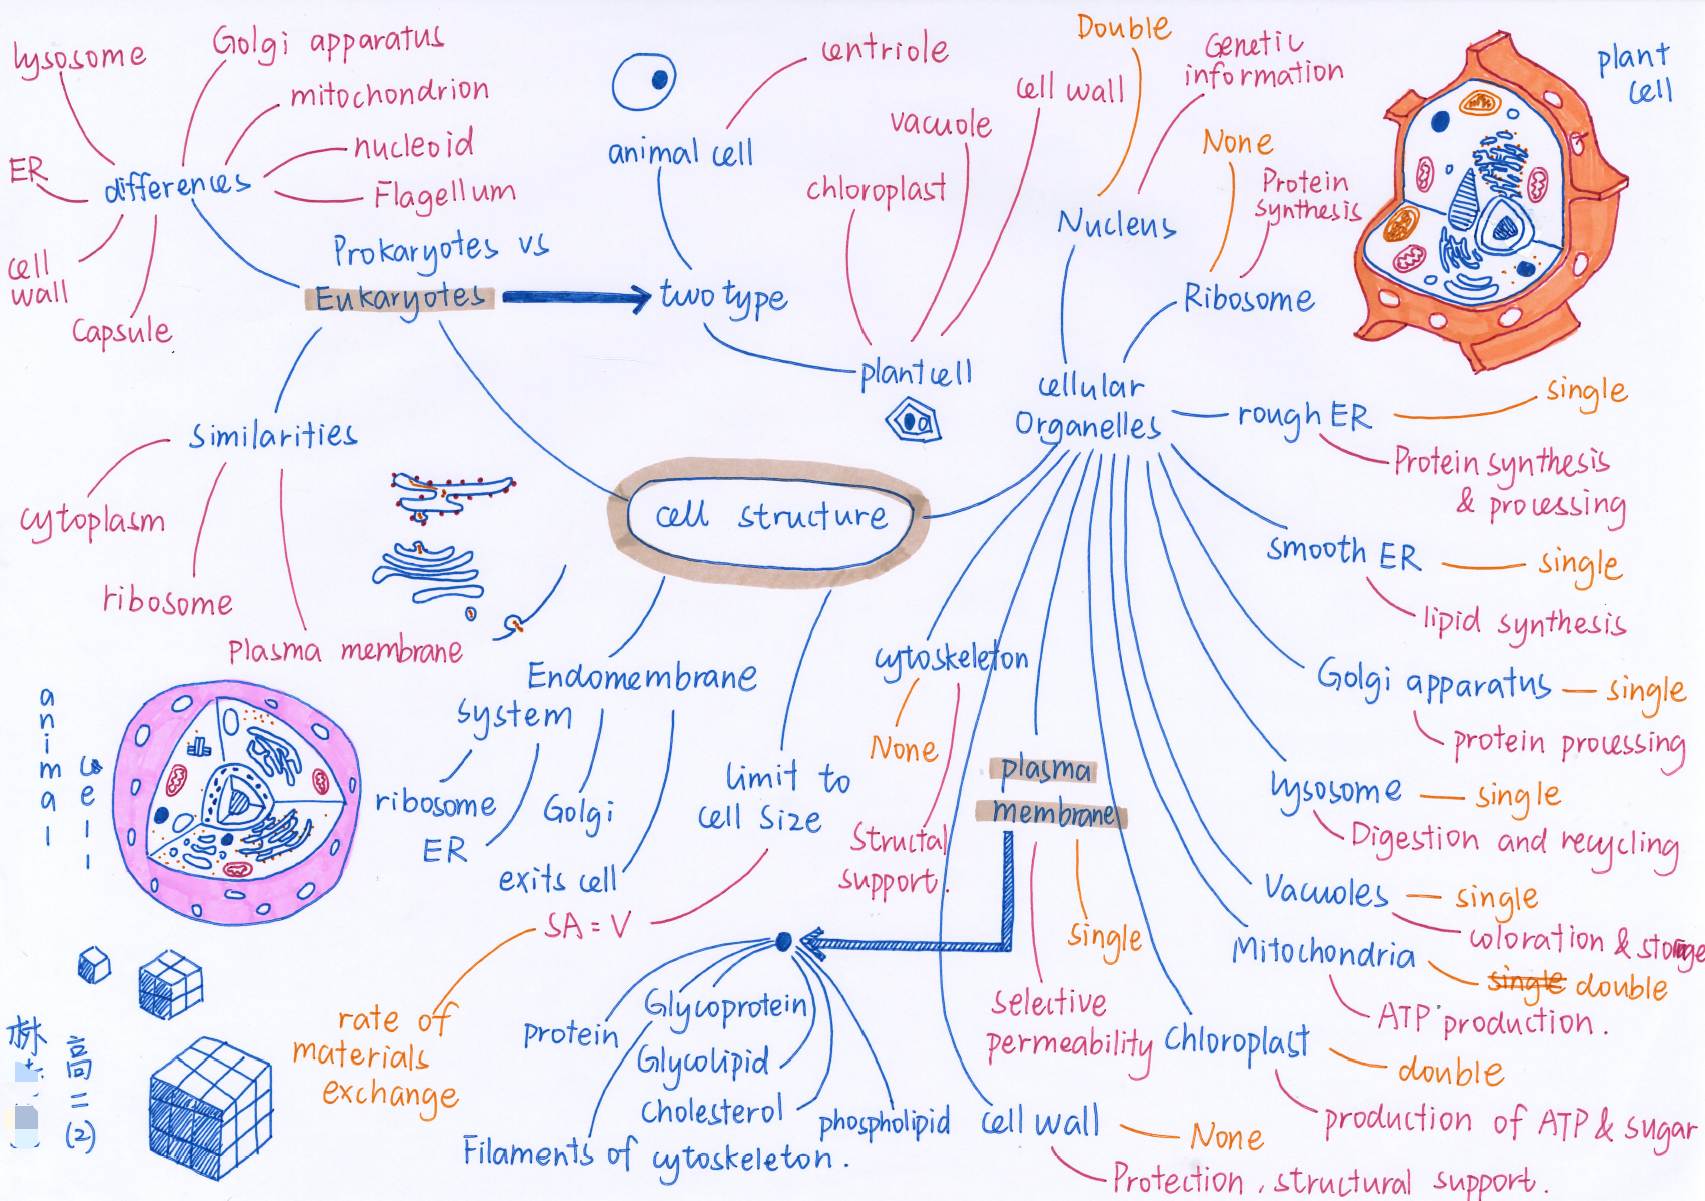 lysosome
Golgi apparatus
mitochondrion
nucleoid
Flagellum
ER
differences
cell
wall
Capsule
Prokaryotes vs
Eukaryotes
two type
animal cell
centriole
chloroplast
vacuole
cell wall
plant cell
Similarities
cytoplasm
ribosome
plasma membrane
cell structure
Endomembrane
system
ribosome
ER
Golgi
exits cell
limit to
cell size
SA = V
rate of
materials
exchange
cellular
Organelles
Nucleus
Double
Genetic
information
Ribosome
None
Protein
synthesis
rough ER
single
Protein synthesis
& processing
smooth ER
single
lipid synthesis
Golgi apparatus
single
protein processing
lysosome
single
Digestion and recycling
Vacuoles
single
coloration & storage
Mitochondria
single double
ATP production.
Chloroplast
double
production of ATP & sugar
cell wall
None
Protection, structural support.
plasma
membrane
single
selective
permeability
cytoskeleton
None
Structal
support.
protein
Glycoprotein
Glycolipid
cholesterol
phospholipid
Filaments of cytoskeleton.
plant
cell
animal
cell
林
高二(2)